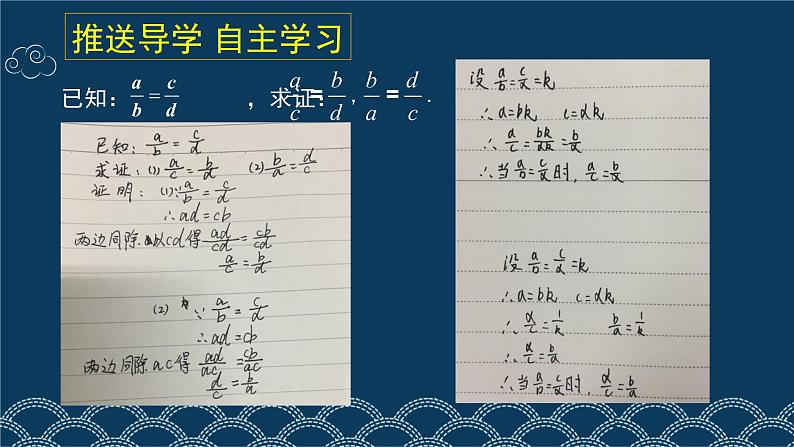 推送导学 自主学习
已知: a/b = c/d ,求证: a/c = b/d , b/a = d/c .
已知: a/b = c/d
求证: (1) a/c = b/d (2) b/a = d/c
证明: (1)∵ a/b = c/d
∴ad=cb
两边同除以cd得 ad/cd = cb/cd
a/c = b/d
(2) ∵ a/b = c/d
∴ad=cb
两边同除ac得 ad/ac = cb/ac
d/c = b/a
设 a/b = c/d = k
∴a=bk c=dk
∴ a/c = bk/dk = b/d
∴当 a/b = c/d 时, a/c = b/d
设 a/b = c/d = k
∴a=bk c=dk
∴ d/c = 1/k b/a = 1/k
∴ d/c = b/a
∴当 a/b = c/d 时, d/c = b/a